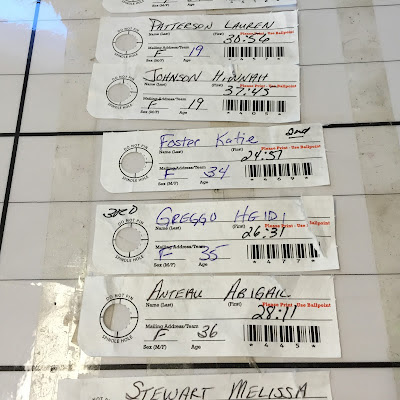 PATTERSON LAUREN
Name (Last) (First) Please Print - Use Ballpoint
30:56
Mailing Address/Team
F 19
Sex (M/F) Age
DO NOT PIN
SPINDLE HOLE
JOHNSON HINNAH
Name (Last) (First) Please Print - Use Ballpoint
37:43
Mailing Address/Team
F 19
Sex (M/F) Age
DO NOT PIN
SPINDLE HOLE
2nd
Foster Katie
Name (Last) (First) Please Print - Use Ballpoint
24:57
Mailing Address/Team
F 34
Sex (M/F) Age
DO NOT PIN
SPINDLE HOLE
3RD
GREGGO HEIDI
Name (Last) (First) Please Print - Use Ballpoint
26:31
Mailing Address/Team
F 35
Sex (M/F) Age
*477*
DO NOT PIN
SPINDLE HOLE
ANTEAU ABIGAIL
Name (Last) (First) Please Print - Use Ballpoint
28:11
Mailing Address/Team
F 36
Sex (M/F) Age
*445*
DO NOT PIN
SPINDLE HOLE
STEWART MELISSA